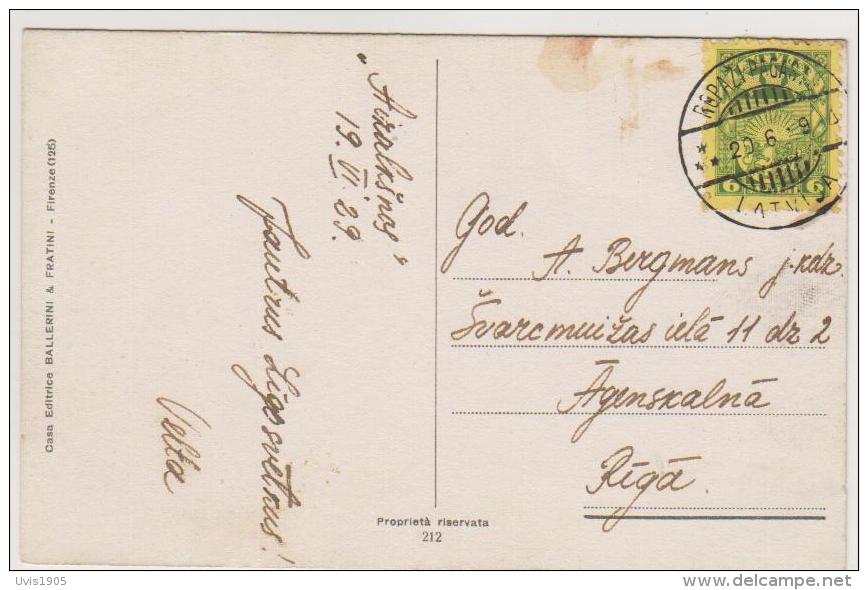 Casa Editrice BALLERINI & FRATINI - Firenze (125)
"Airalkšnos"
19. VI. 29.
Jautrus Līgo svētkus!
Velta
Proprietà riservata
212
God.
A. Bergmans j. kdz.
Švarcmuižas ielā 11 dz 2
Āgenskalnā
Rīgā.
ROPAŽI
20 6
LATVIJA
6 6
Uvis1905
delcampe.net